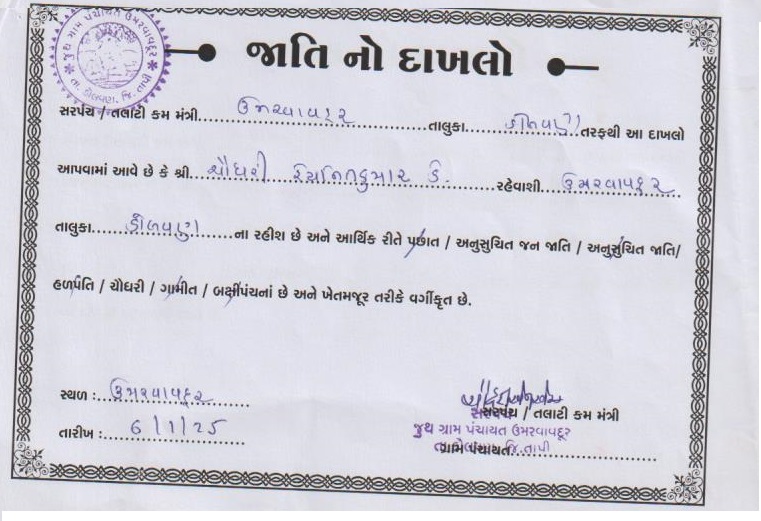 જુથ ગ્રામ પંચાયત ઉમરવાવદૂર
તા. ડોલવણ, જિ. તાપી
જાતિ નો દાખલો
સરપંચ / તલાટી કમ મંત્રી ઉમરવાવદુર તાલુકા ડોલવણ તરફથી આ દાખલો
આપવામાં આવે છે કે શ્રી ચૌધરી રહેવાશી ઉમરવાવદુર
તાલુકા ડોલવણ ના રહીશ છે અને આર્થિક રીતે પછાત / અનુસુચિત જન જાતિ / અનુસુચિત જાતિ/
હળપતિ / ચૌધરી / ગામીત / બક્ષીપંચનાં છે અને ખેતમજૂર તરીકે વર્ગીકૃત છે.
સ્થળ : ઉમરવાવદુર
તારીખ : 6/1/25
સરપંચ
સરપંચ / તલાટી કમ મંત્રી
જુથ ગ્રામ પંચાયત ઉમરવાવદૂર
તા.ડોલવણ જિ.તાપી
ગ્રામ પંચાયત